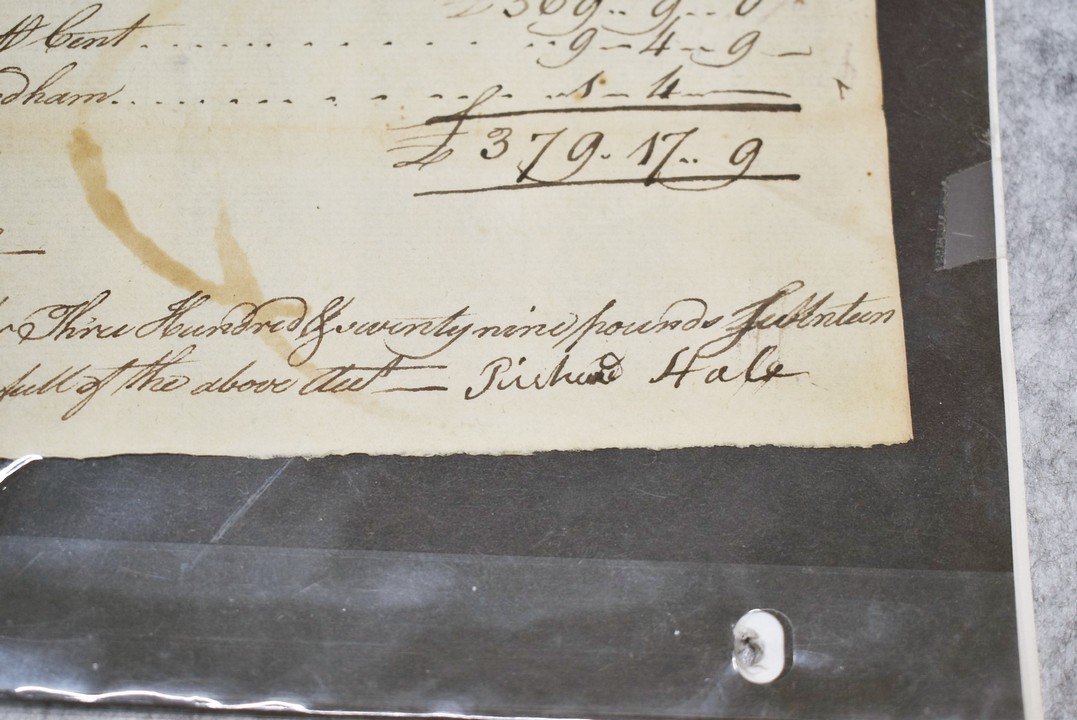 £369.. 9.. 0
⅌ Cent . . . . . . . . . . . 9 - 4 - 9
dham . . . . . . . . . . . 1 - 4
£379.. 17.. 9
Three Hundred & seventy nine pounds Seventeen
full of the above acct — Richard Hale